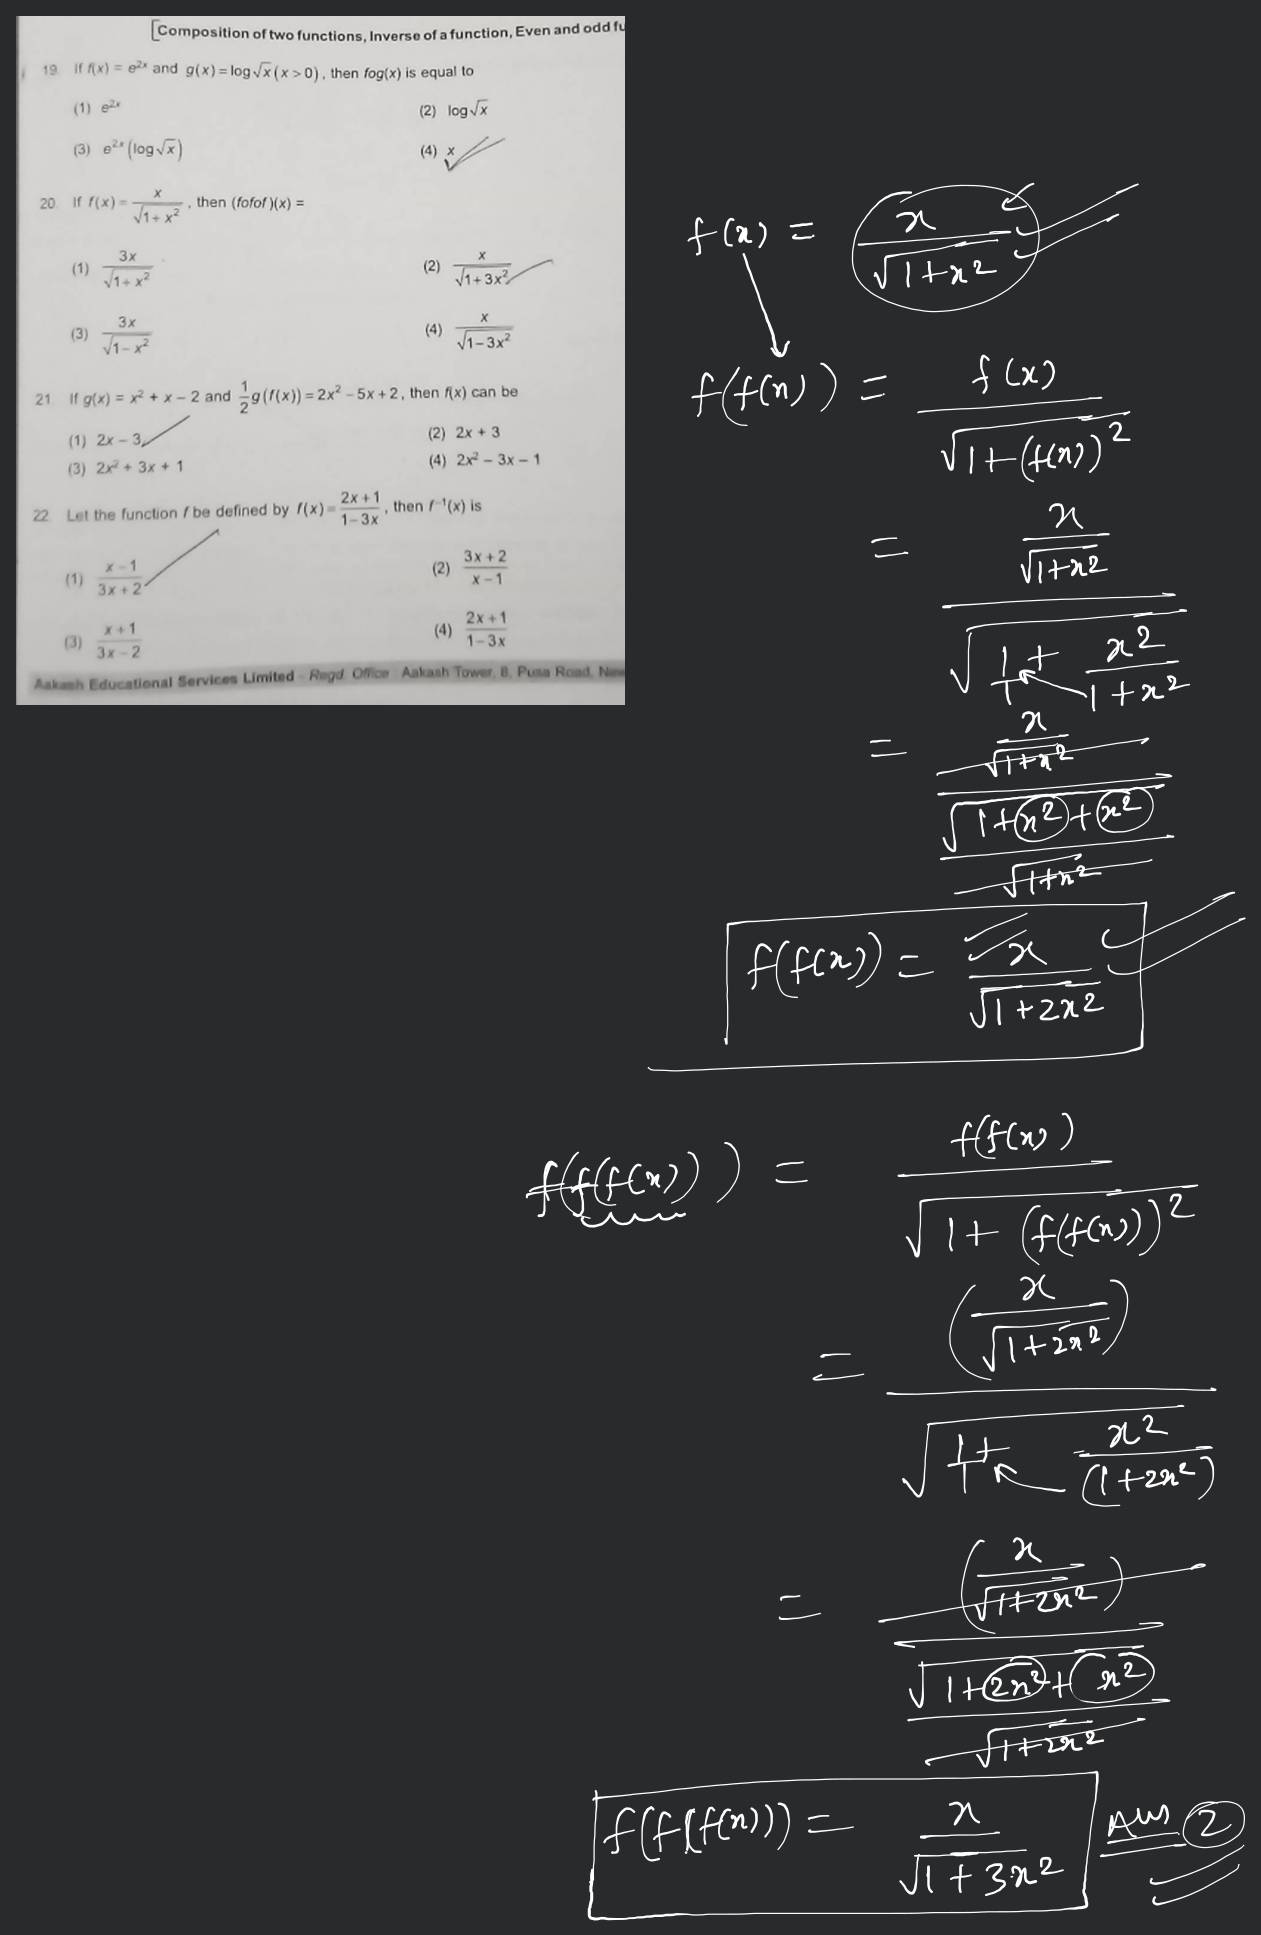 [Composition of two functions, Inverse of a function, Even and odd fu
19. If f(x) = e^{2x} and g(x) = log√x (x > 0), then fog(x) is equal to
(1) e^{2x} (2) log√x
(3) e^{2x} (log√x) (4) x
20. If f(x) = x/√(1+x²), then (fofof)(x) =
(1) 3x/√(1+x²) (2) x/√(1+3x²)
(3) 3x/√(1-x²) (4) x/√(1-3x²)
21. If g(x) = x² + x – 2 and 1/2 g(f(x)) = 2x² – 5x + 2, then f(x) can be
(1) 2x – 3 (2) 2x + 3
(3) 2x² + 3x + 1 (4) 2x² – 3x – 1
22. Let the function f be defined by f(x) = (2x+1)/(1-3x), then f⁻¹(x) is
(1) (x-1)/(3x+2) (2) (3x+2)/(x-1)
(3) (x+1)/(3x-2) (4) (2x+1)/(1-3x)
Aakash Educational Services Limited - Regd. Office : Aakash Tower, 8, Pusa Road, New
f(x) = x/√(1+x²)
f(f(x)) = f(x)/√(1+(f(x))²)
= (x/√(1+x²))/√(1/1 + x²/(1+x²))
= (x/√(1+x²))/(√(1+x²+x²)/√(1+x²))
f(f(x)) = x/√(1+2x²)
f(f(f(x))) = f(f(x))/√(1+(f(f(x)))²)
= (x/√(1+2x²))/√(1/1 + x²/(1+2x²))
= (x/√(1+2x²))/(√(1+2x²+x²)/√(1+2x²))
f(f(f(x))) = x/√(1+3x²) Ans 2